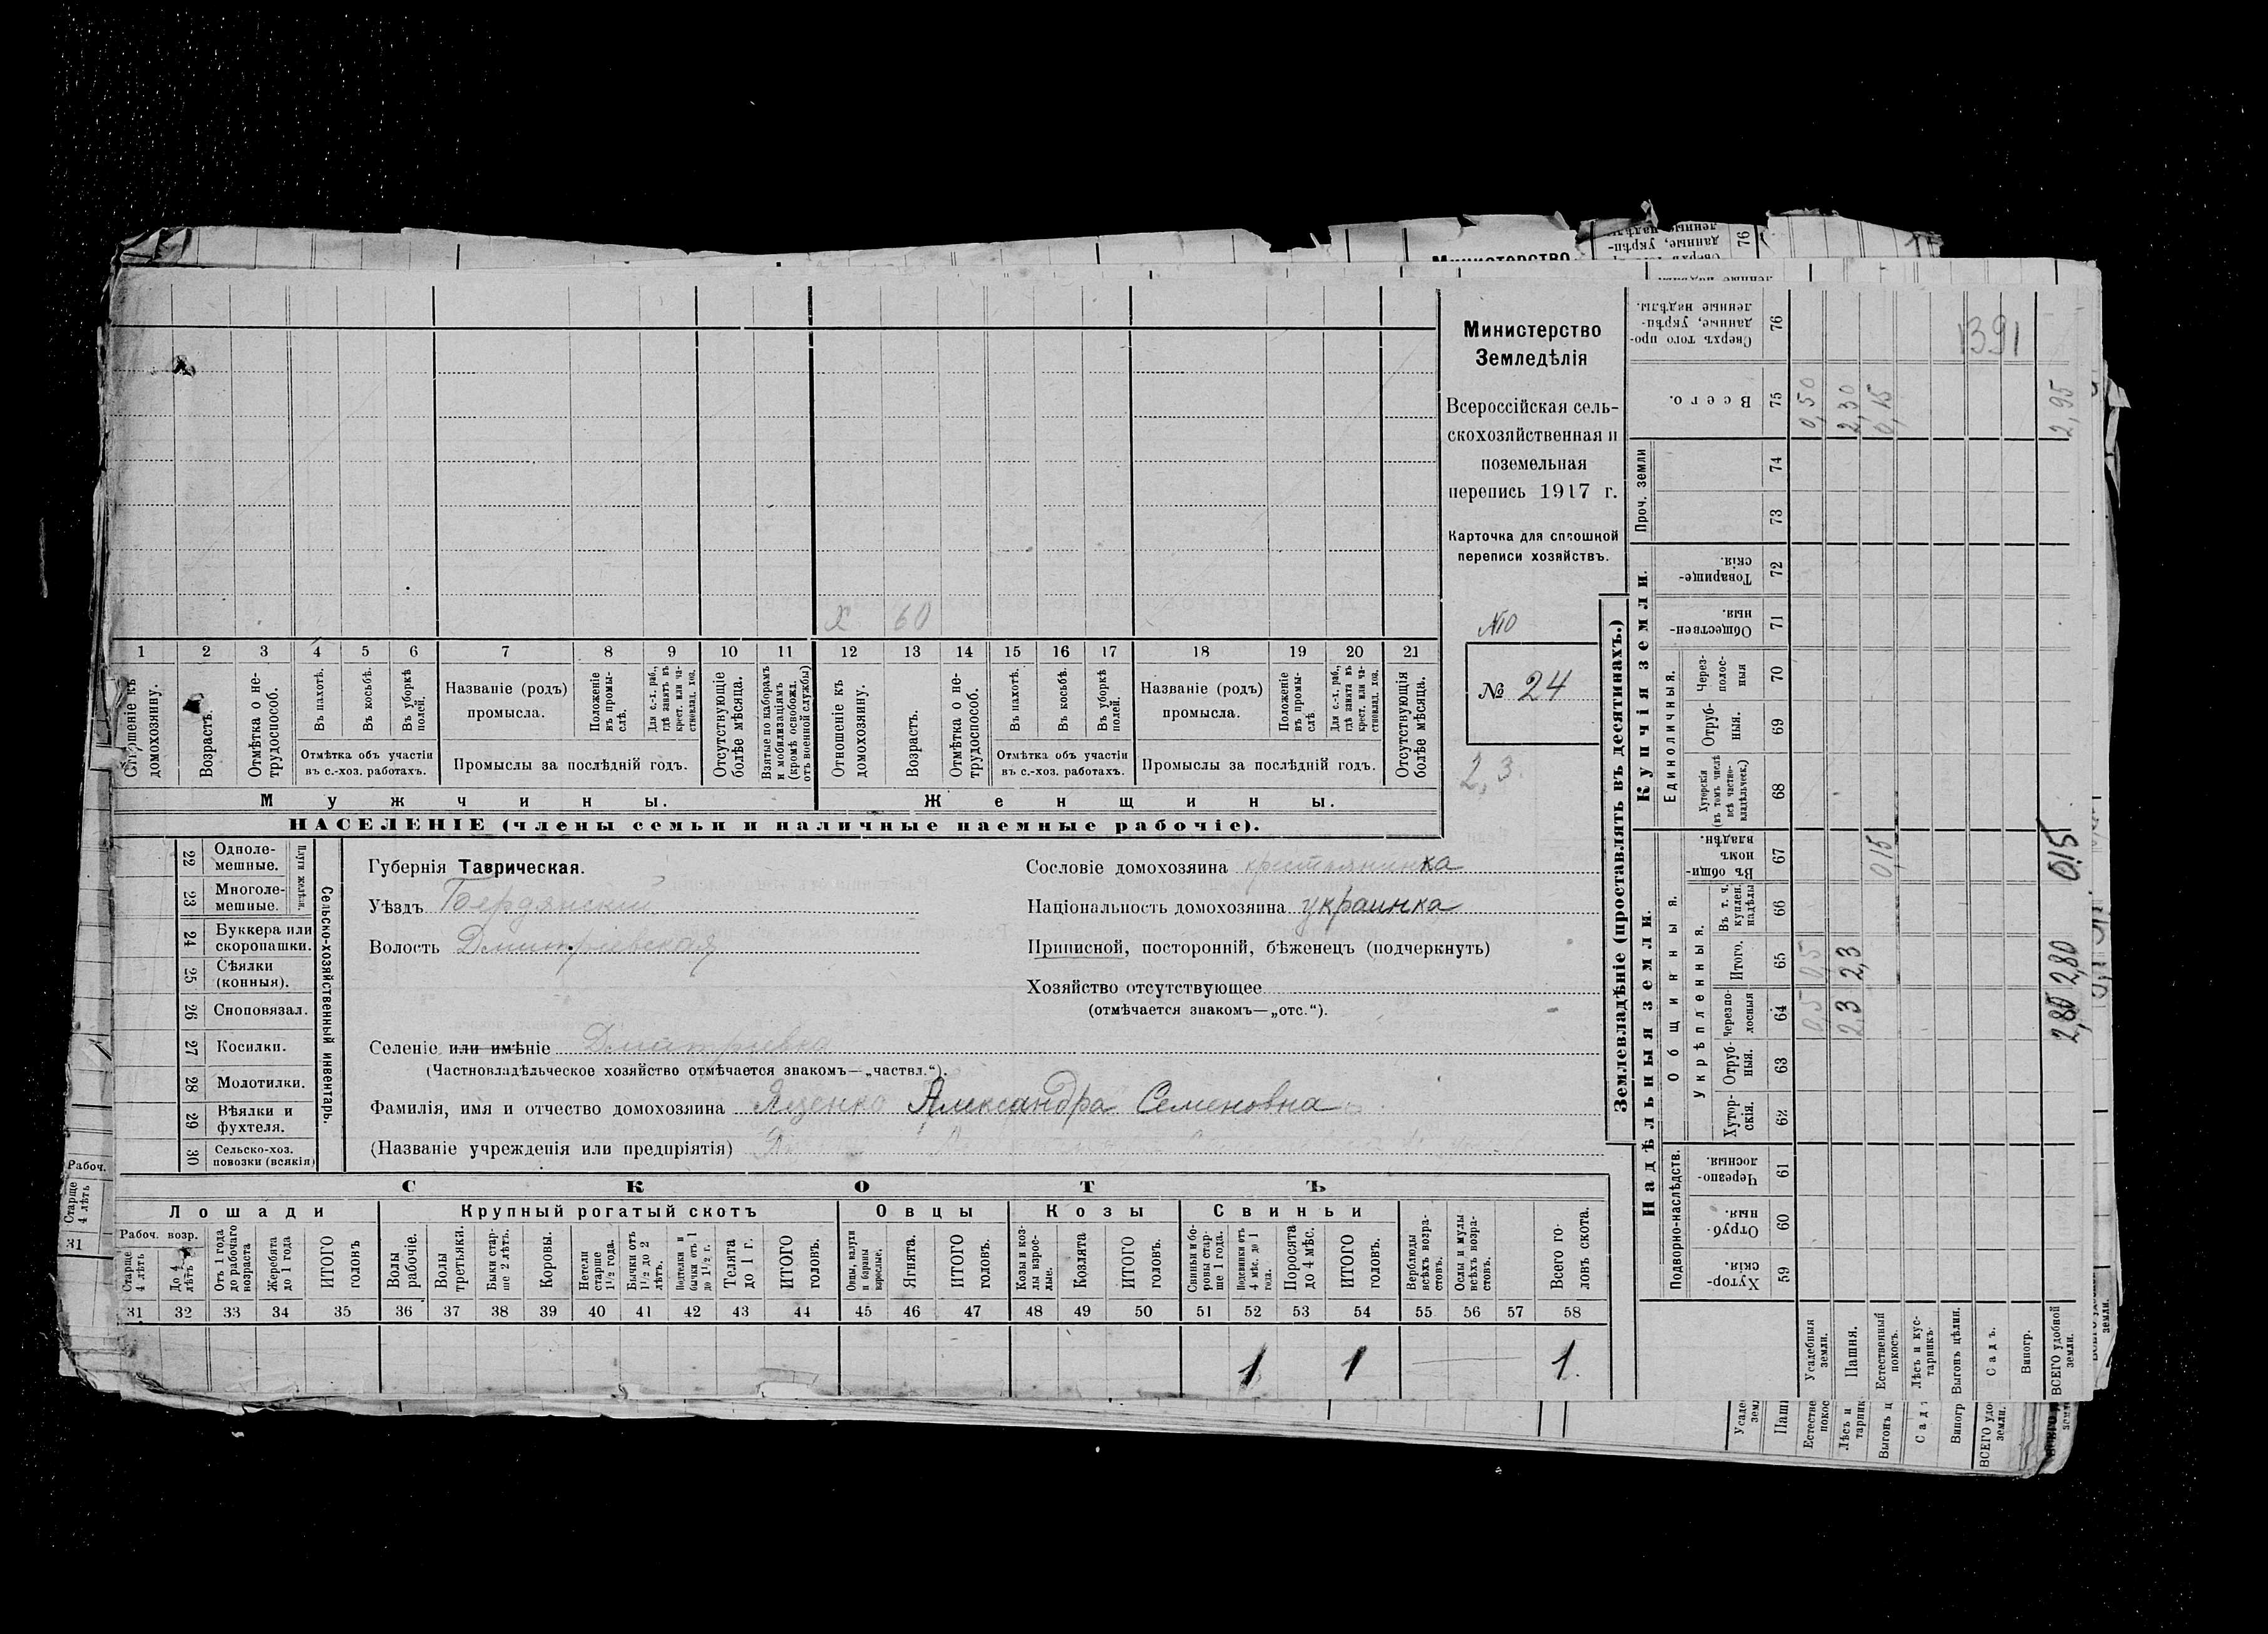 Министерство
Земледѣлія
Всероссійская сель-
скохозяйственная и
поземельная
перепись 1917 г.
Карточка для сплошной
переписи хозяйствъ.
№
№ 24
2,3.
х 60
1 2 3 4 5 6 7 8 9 10 11 12 13 14 15 16 17 18 19 20 21
Отношеніе къ домохозяину.
Возрастъ.
Отмѣтка о не-трудоспособ.
Въ пахотѣ.
Въ косьбѣ.
Въ уборкѣ полей.
Отмѣтка объ участіи
въ с.-хоз. работахъ.
Названіе (родъ)
промысла.
Положеніе въ промы-слѣ.
Для с.-х. раб., гдѣ занятъ въ крест. или ча-стновлад. хоз.
Промыслы за послѣдній годъ.
Отсутствующіе болѣе мѣсяца.
Взятые по наборамъ и мобилизаціямъ (кромѣ освобожд. отъ военной службы)
Отношеніе къ домохозяину.
Возрастъ.
Отмѣтка о не-трудоспособ.
Въ пахотѣ.
Въ косьбѣ.
Въ уборкѣ полей.
Отмѣтка объ участіи
въ с.-хоз. работахъ.
Названіе (родъ)
промысла.
Положеніе въ промы-слѣ
Для с.-х. раб., гдѣ занята въ крест. или ча-стновлад. хоз.
Промыслы за послѣдній годъ.
Отсутствующія болѣе мѣсяца.
Мужчины.
Женщины.
НАСЕЛЕНІЕ (члены семьи и наличные наемные рабочіе).
22 Одноле-мешные.
23 Многоле-мешные.
Плуги желѣзн.
24 Буккера или скоропашки.
25 Сѣялки (конныя).
26 Сноповязал.
27 Косилки.
28 Молотилки.
29 Вѣялки и фухтеля.
30 Сельско-хоз. повозки (всякія)
Сельско-хозяйственный инвентарь.
Губернія Таврическая.
Уѣздъ Бердянскій
Волость Дмитріевская
Сословіе домохозяина крестьянинка
Національность домохозяина украинка
Приписной, посторонній, бѣженецъ (подчеркнуть)
Хозяйство отсутствующее
(отмѣчается знакомъ—„отс.“).
Селеніе или имѣніе Дмитріевка
(Частновладѣльческое хозяйство отмѣчается знакомъ—„частвл.“).
Фамилія, имя и отчество домохозяина Яценко Александра Семеновна
(Названіе учрежденія или предпріятія)
СКОТЪ
Лошади
Крупный рогатый скотъ
Овцы
Козы
Свиньи
Рабоч. возр.
Старше 4 лѣтъ
До 4 лѣтъ
Отъ 1 года до рабочаго возраста
Жеребята до 1 года
ИТОГО головъ
Волы рабочіе.
Волы третьяки.
Быки стар-ше 2 лѣтъ.
Коровы.
Нетели старше 1½ года.
Бычки отъ 1½ до 2 лѣтъ.
Подтелки и бычки отъ 1 до 1½ г.
Телята до 1 г.
ИТОГО головъ.
Овцы, валухи и бараны взрослые.
Ягнята.
ИТОГО головъ.
Козы и коз-лы взрос-лые.
Козлята
ИТОГО головъ.
Свиньи и бо-ровы стар-ше 1 года.
Подсвинки отъ 4 мѣс. до 1 года.
Поросята до 4 мѣс.
ИТОГО головъ.
Верблюды всѣхъ возра-стовъ.
Ослы и мулы всѣхъ возра-стовъ.
Всего го-ловъ скота.
31 32 33 34 35 36 37 38 39 40 41 42 43 44 45 46 47 48 49 50 51 52 53 54 55 56 57 58
1 1 1.
Землевладѣніе (проставлять въ десятинахъ.)
Надѣльныя земли.
Купчія земли.
Проч. земли
Подворно-наслѣдств.
Общинныя.
Укрѣпленныя.
Единоличныя.
Хутор-скія. 59
Отруб-ныя. 60
Черезпо-лосныя. 61
Хутор-скія. 62
Отруб-ныя. 63
Черезпо-лосныя 64
Итого. 65
Въ т. ч. куплен. надѣлы 66
Въ общи-номъ владѣн. 67
Хуторскія (въ томъ числѣ всѣ частно-владѣльческ.) 68
Отруб-ныя. 69
Через-полос-ныя 70
Обществен-ныя. 71
Товарище-скія. 72
73
74
Всего. 75
Сверхъ того про-данные, укрѣп-ленные надѣлы. 76
Усадебныя земли. 0,5 0,5 0,50
Пашня. 2,3 2,3 2,30
Естественный покосъ. 0,15 0,15
Лѣсъ и кус-тарникъ.
Выгонъ цѣлин.
Садъ.
Виногр.
ВСЕГО удобной земли. 2,80 2,80 0,15 2,95
1391
Министерство
76
Рабоч.
Старше 4 лѣтъ
31